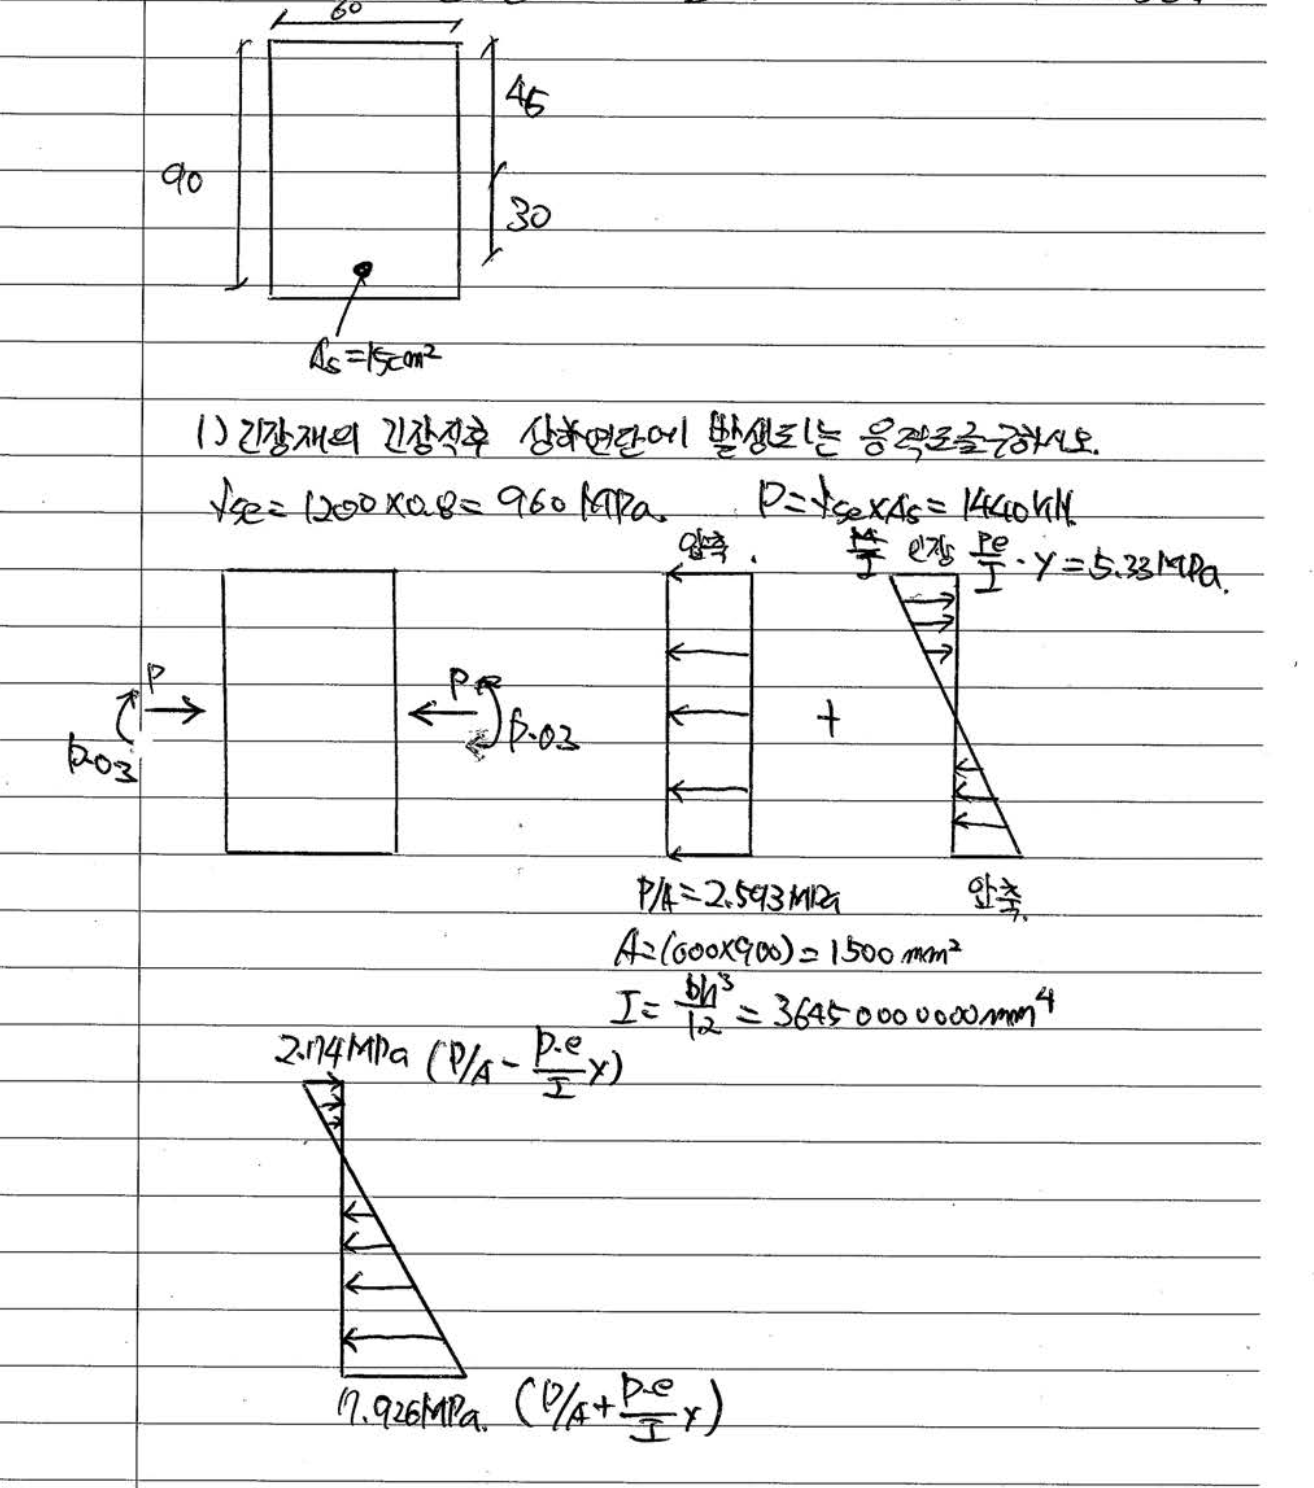 60
45
90
30
As=15cm²
1) 긴장재의 긴장직후 상하연단에 발생되는 응력도를구하시오.
fse = 1200×0.8 = 960 MPa. P = fse×As = 1440kN.
압축. 인장 Pe/I · y = 5.33MPa.
P P
P·0.3 P·0.3
P/A = 2.593MPa 압축.
A = (600×900) = 1500 mm²
I = bh³/12 = 36450000000mm⁴
2.74MPa (P/A - P·e/I y)
7.926MPa. (P/A + P·e/I y)